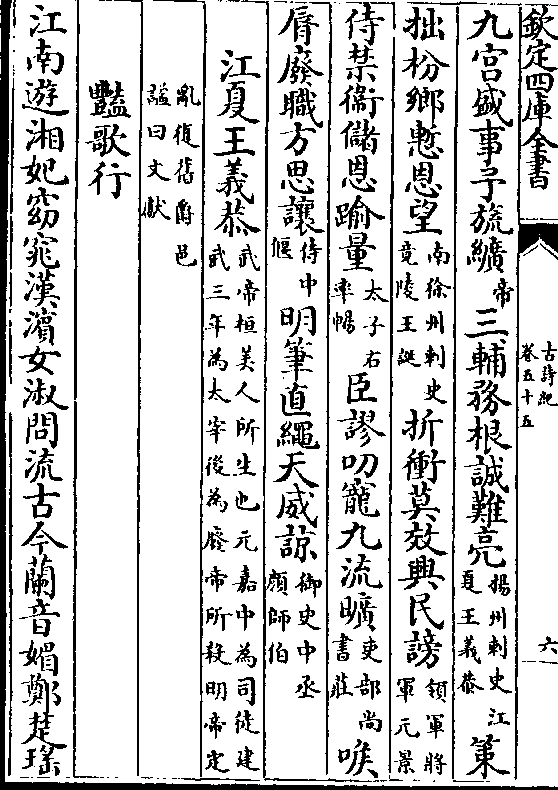 欽定四庫全書
古詩紀
卷五十五
六
九宮盛事予旒纊帝三輔務根誠難亮揚州刺史江夏王義恭策
拙枌鄉慙恩望南徐州刺史竟陵王誕折衝莫效興民謗領軍將軍元景
侍禁衞儲恩踰量太子右率暢臣謬叨寵九流曠吏部尚書莊喉
脣廢職方思讓侍中偃明筆直繩天威諒御史中丞顔師伯
江夏王義恭武帝桓美人所生也元嘉中為司徒建武三年為太宰後為廢帝所殺明帝定
亂復舊爵邑諡曰文獻
豔歌行
江南遊湘妃窈窕漢濱女淑問流古今蘭音媚鄭楚瑤